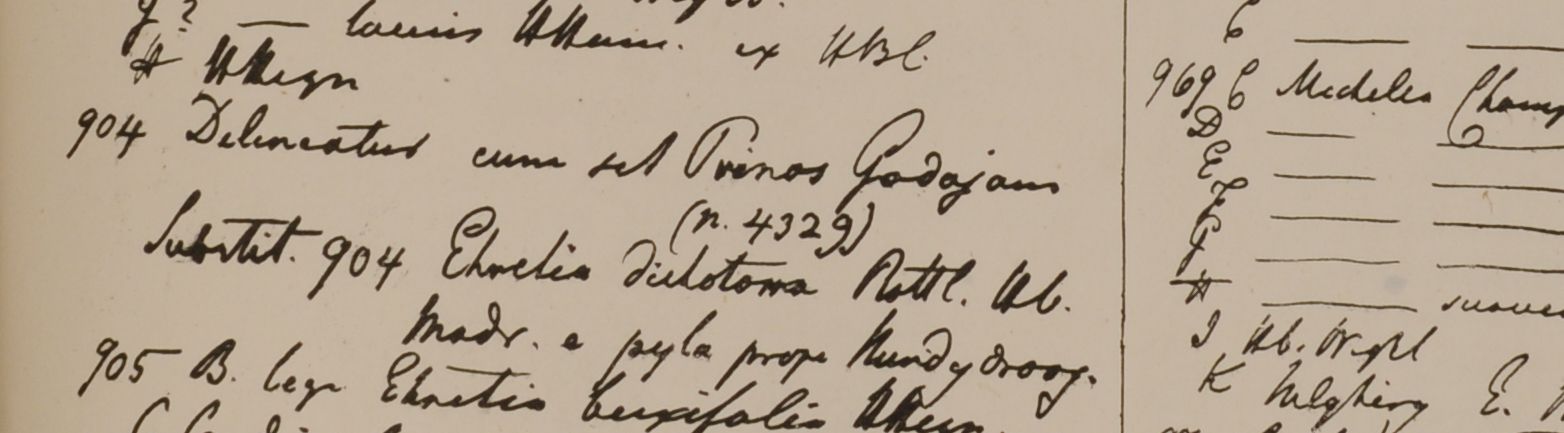 g? — laevis HHam. ex HBl.
H HHeyn
904 Delineatur cum sel Prinos Godajam
(n. 4329)
Substit. 904 Ehretia dichotoma Rottl. Hb.
Madr. e pyla prope Nundydroog.
905 B. lege Ehretia buxifolia HHeyn.
C
969 C Michelia Champ
D — —
E — —
F — —
G — —
H — suave
I Hb. Wight
K E.